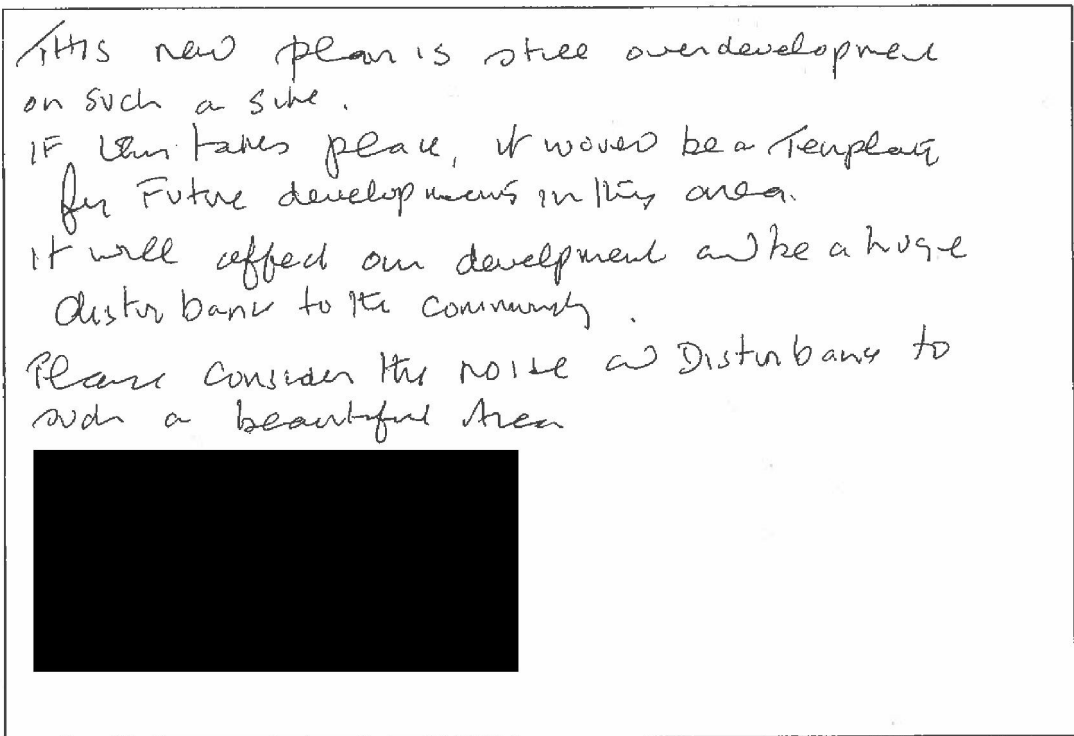 THIS new plan is still overdevelopment
on such a site.
IF this takes place, it would be a Template
for Future developments in this area.
It will affect our develpment and be a huge
disturbance to the community.
Please consider the noise and Disturbance to
such a beautiful Area